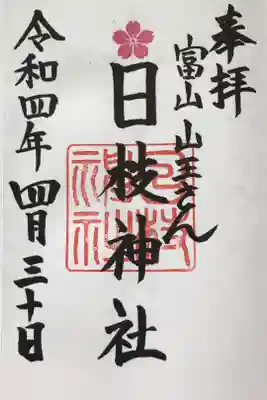 奉拝
富山山王さん
日枝神社
日枝神社
令和四年四月三十日